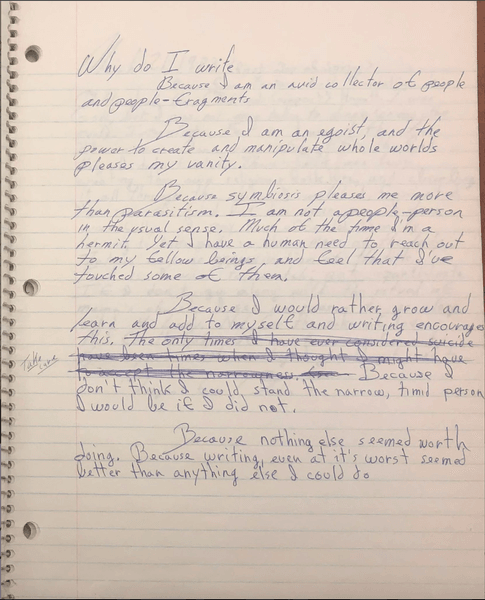 Why do I write
Because I am an avid collector of people
and people-fragments
Because I am an egoist, and the
power to create and manipulate whole worlds
pleases my vanity.
Because symbiosis pleases me more
than parasitism. I am not a people-person
in the usual sense. Much of the time I'm a
hermit. Yet I have a human need to reach out
to my fellow beings and feel that I've
touched some of them.
Because I would rather grow and
learn and add to myself and writing encourages
this. The only times I have ever considered suicide
have been times when I thought I might have
to accept the narrowness Because I
don't think I could stand the narrow, timid person
I would be if I did not.
Because nothing else seemed worth
doing. Because writing, even at it's worst seemed
better than anything else I could do